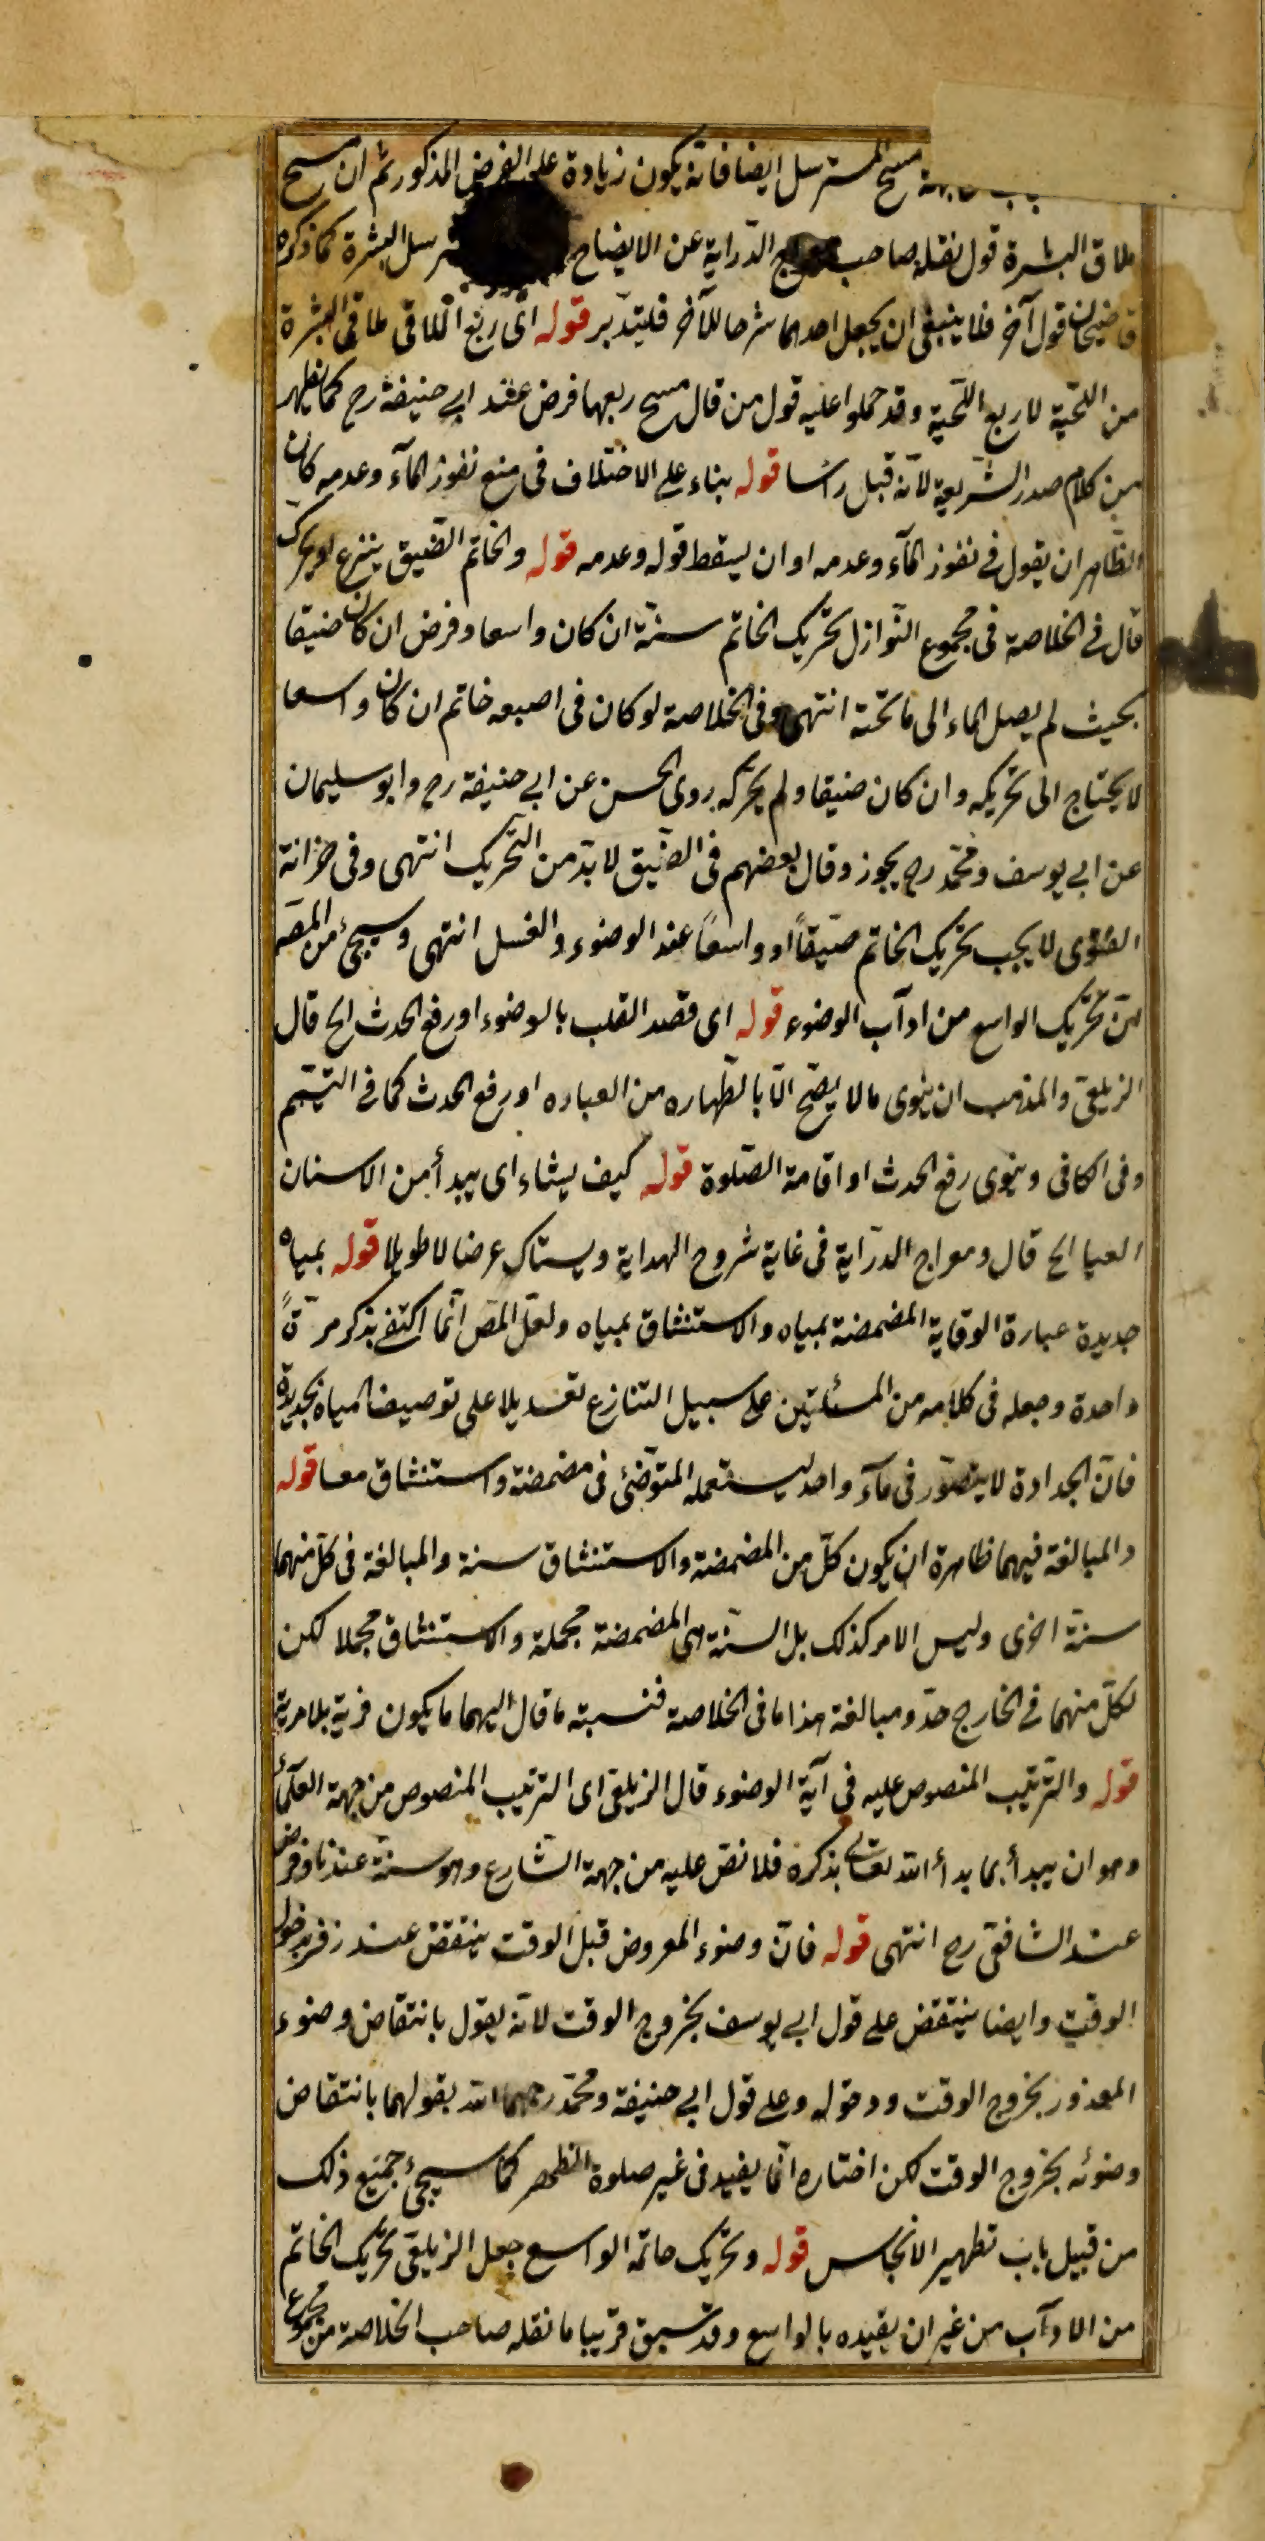 مسح المسترسل ايضا فانه يكون زيادة على الفرض المذكور ثم ان مسح
ملاق البشرة قول نقله صاحب معراج الدراية عن الايضاح البشرة كما ذكره
قاضيخان قول آخر فلا ينبغى ان يجعل احدهما شرحا للآخر فليتدبر قوله اى ربع الملاقى ملاقى البشرة
من اللحية لا ربع اللحية وقد حملوا عليه قول من قال مسح ربعها فرض عند ابى حنيفة رح كما يظهر
من كلام صدر الشريعة لانه قبل رأسا قوله بناء على الاختلاف فى منع نفوذ الماء وعدمه كان
الظاهر ان يقول فى نفوذ الماء وعدمه او ان يسقط قوله وعدمه قوله والخاتم الضيق ينزع او يحرك
قال فى الخلاصة فى مجموع النوازل تحريك الخاتم سنة ان كان واسعا وفرض ان كان ضيقا
بحيث لم يصل الماء الى ما تحته انتهى وفى الخلاصة لو كان فى اصبعه خاتم ان كان واسعا
لا يحتاج الى تحريكه وان كان ضيقا ولم يحركه روى الحسن عن ابى حنيفة رح وابو سليمان
عن ابى يوسف ومحمد رح يجوز وقال بعضهم فى الضيق لا بد من التحريك انتهى وفى خزانة
الفتوى لا يجب تحريك الخاتم ضيقاً او واسعاً عند الوضوء والغسل انتهى وسيجئ من المصـ
من تحريك الواسع من ادآب الوضوء قوله اى قصد القلب بالوضوء او رفع الحدث الخ قال
الزيلعى والمذهب ان ينوى ما لا يصح الا بالطهاره من العباده او رفع الحدث كما فى التيمم
وفى الكافى وينوى رفع الحدث او اقامة الصلوة قوله كيف يشاء اى يبدأ من الاسنان
العيا الخ قال ومعراج الدراية فى غاية شروح الهداية ويستاك عرضا لا طويلا قوله بمياه
جديدة عبارة الوقاية المضمضة بمياه والاستنشاق بمياه ولعل المص انما اكتفى بذكر مرةً
واحدة وجعله فى كلامه من المسئلتين على سبيل التنازع تعديلا على توصيف المياه بجديدة
فان الجدادة لا يتصور فى مآء واحد ليستعمله المتوضئ فى مضمضة واستنشاق معا قوله
والمبالغة فيهما ظاهرة ان يكون كل من المضمضة والاستنشاق سنة والمبالغة فى كل منهما
سنة اخرى وليس الامر كذلك بل السنة هى المضمضة مجملة والاستنشاق مجملا لكن
لكل منهما فى الخارج حد ومبالغة هذا ما فى الخلاصة فنسبته ما قال اليهما ما يكون فرية بلا مرية
قوله والترتيب المنصوص عليه فى آية الوضوء قال الزيلعى اى الترتيب المنصوص من جهة العلمآء
وهو ان يبدأ بما بدأ الله تعالى بذكره فلا نص عليه من جهة الشارع وهو سنة عندنا وفرض
عند الشافعى رح انتهى قوله فان وضوء المعروض قبل الوقت ينتقض عند زفر بدخول
الوقت وايضا ينتقض على قول ابى يوسف بخروج الوقت لانه يقول بانتقاض وضوء
المعذور بخروج الوقت ودخوله وعلى قول ابى حنيفة ومحمد رحمهما الله بقولهما بانتقاض
وضوئه بخروج الوقت لكن اختاره انما يفيد فى غير صلوة الظهر كما سيجئ جميع ذلك
من قبيل باب تطهير الانجاس قوله وتحريك خاتمه الواسع جعل الزيلعى تحريك الخاتم
من الادآب من غير ان يقيده بالواسع وقد سبق قريبا ما نقله صاحب الخلاصة من مجموع